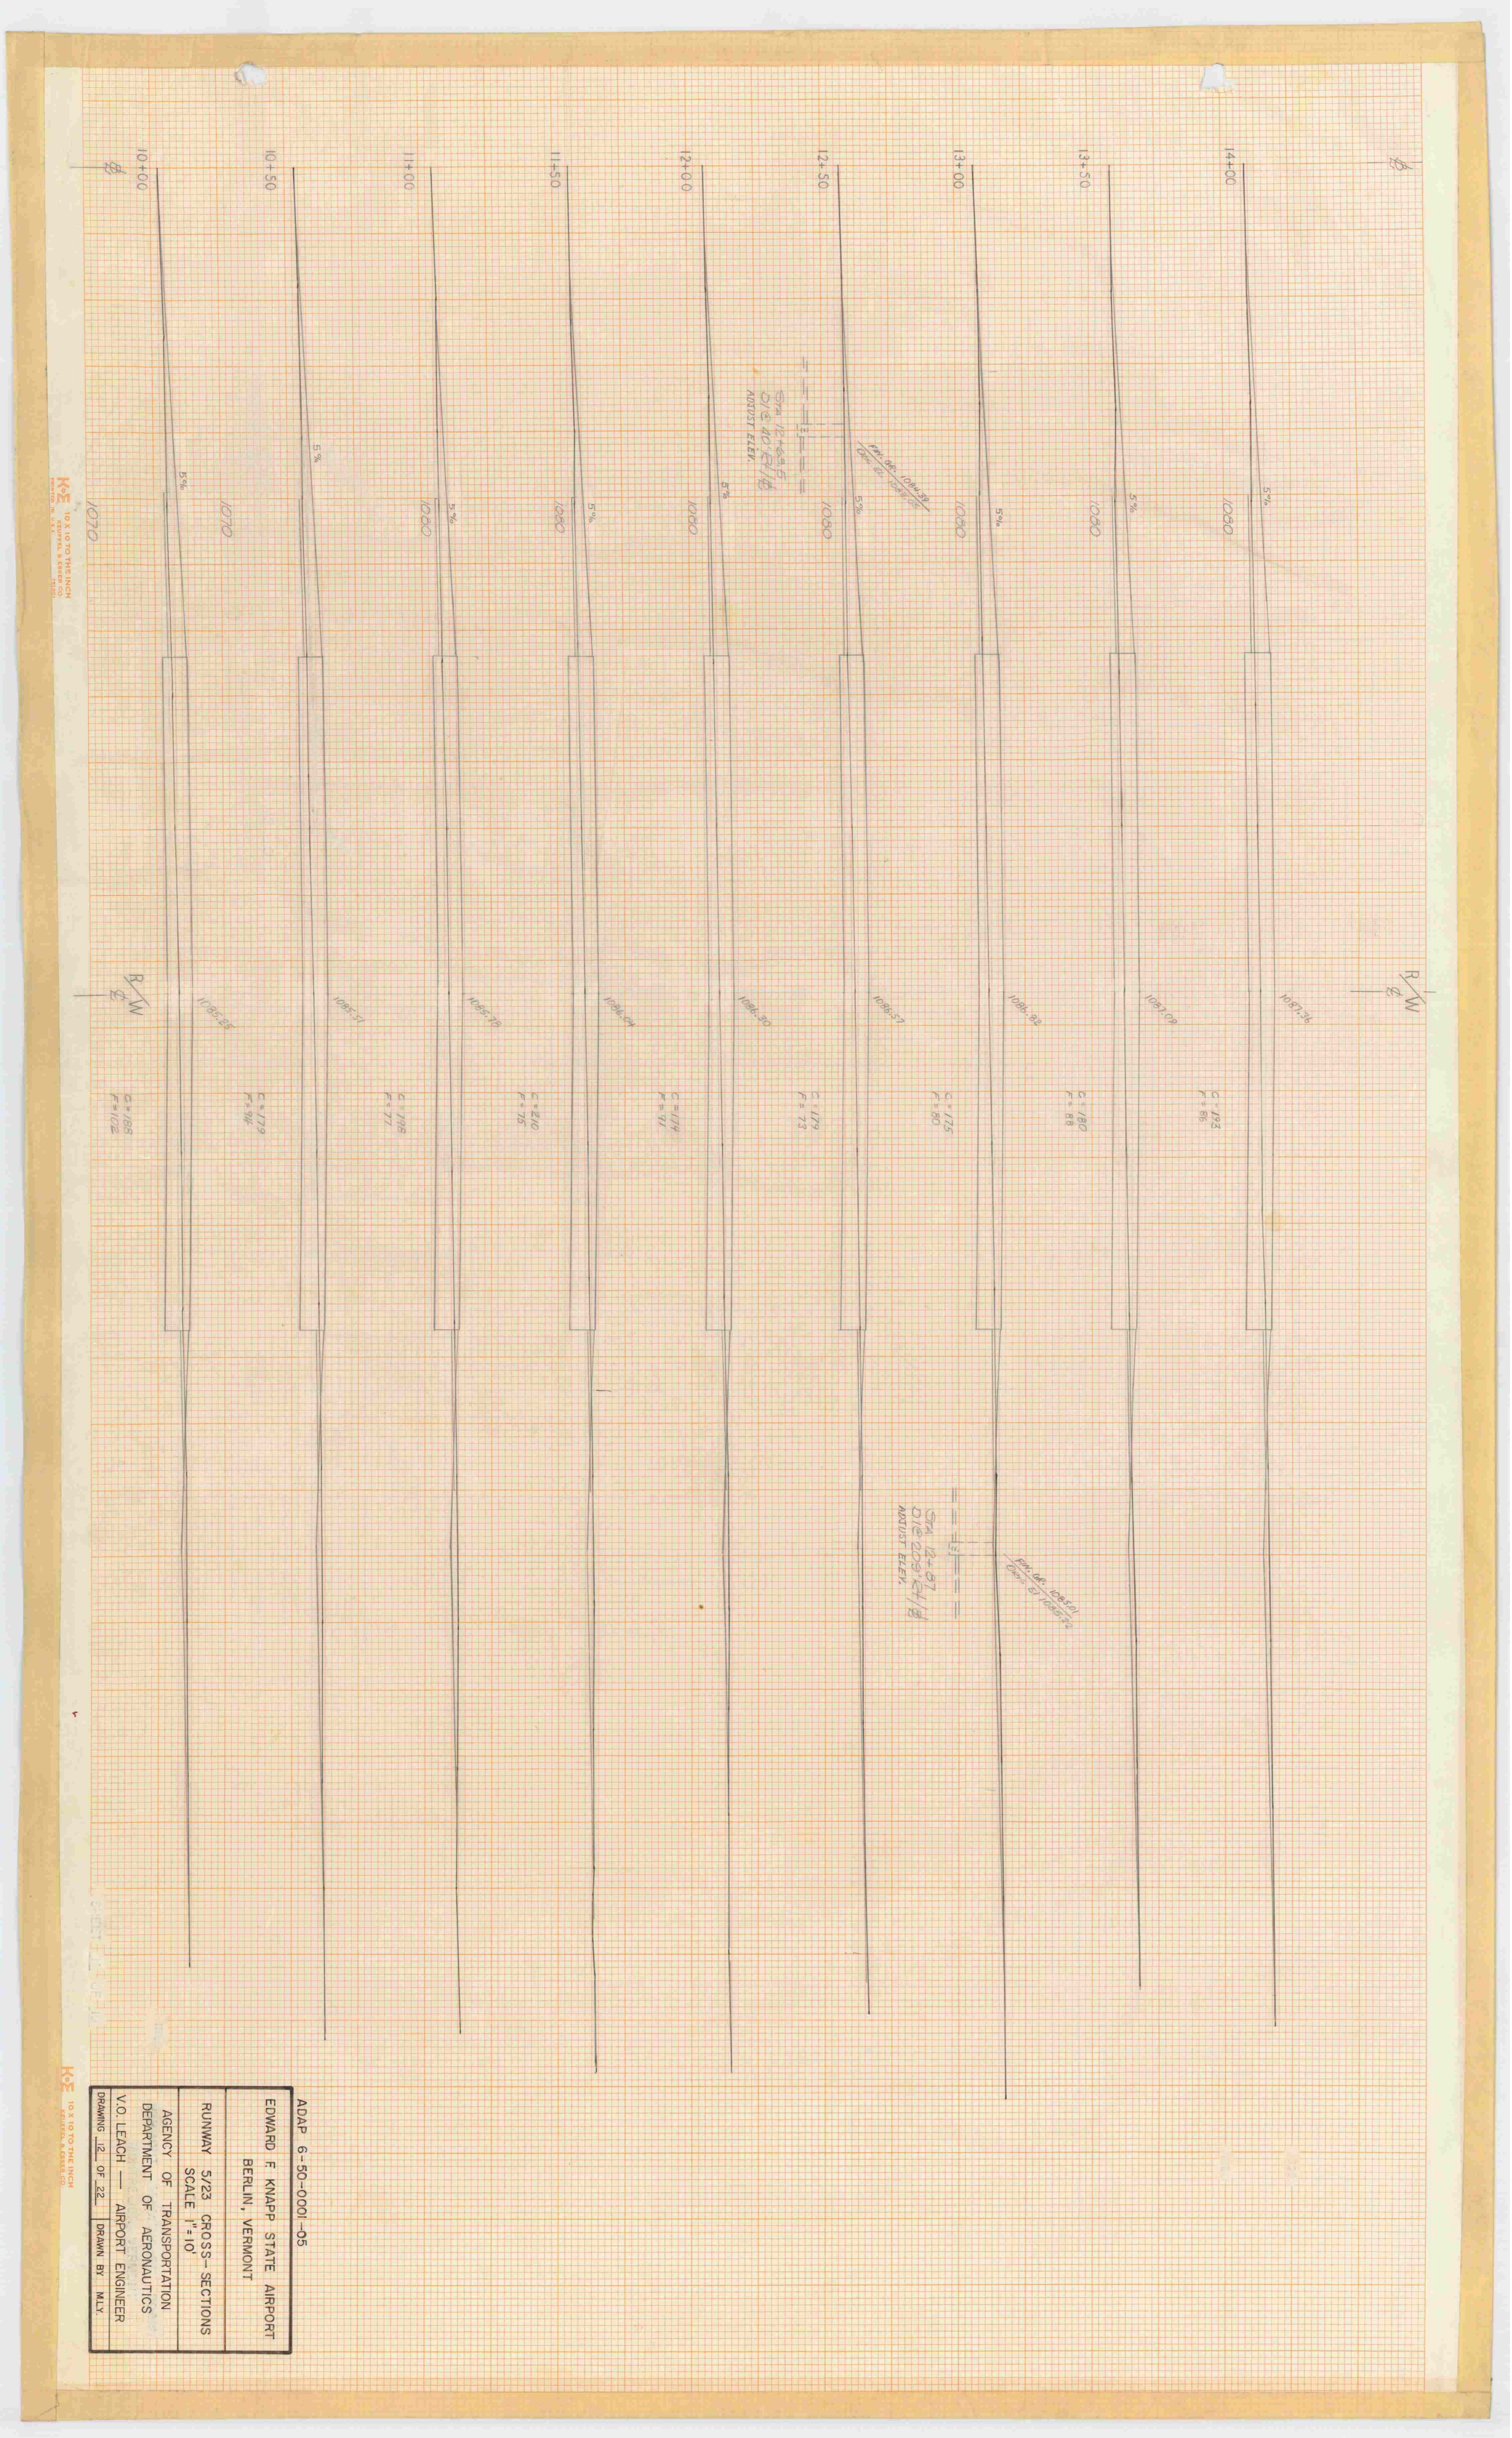 14+00
13+50
13+00
12+50
12+00
11+50
11+00
10+50
10+00
5%
5%
5%
5%
5%
5%
5%
5%
5%
1080
1080
1080
1080
1080
1080
1080
1070
1070
ADJUST ELEV.
FIN. GR. 1084.39
R/W
R/W
1087.36
1087.09
1086.82
1086.57
1086.30
1086.04
1085.78
1085.51
1085.25
C = 193
F = 86
C = 180
F = 88
C = 175
F = 80
C = 179
F = 73
C = 174
F = 91
C = 210
F = 75
C = 198
F = 77
C = 179
F = 94
C = 188
F = 102
STA 12+87
ADJUST ELEV.
FIN. GR. 1085.01
ADAP 6-50-0001-05
EDWARD F. KNAPP STATE AIRPORT
BERLIN, VERMONT
RUNWAY 5/23 CROSS-SECTIONS
SCALE 1"=10'
AGENCY OF TRANSPORTATION
DEPARTMENT OF AERONAUTICS
V.O. LEACH — AIRPORT ENGINEER
DRAWING 12 OF 22 DRAWN BY M.L.Y.
K+E 10 X 10 TO THE INCH
KEUFFEL & ESSER CO.
K+E 10 X 10 TO THE INCH
KEUFFEL & ESSER CO.